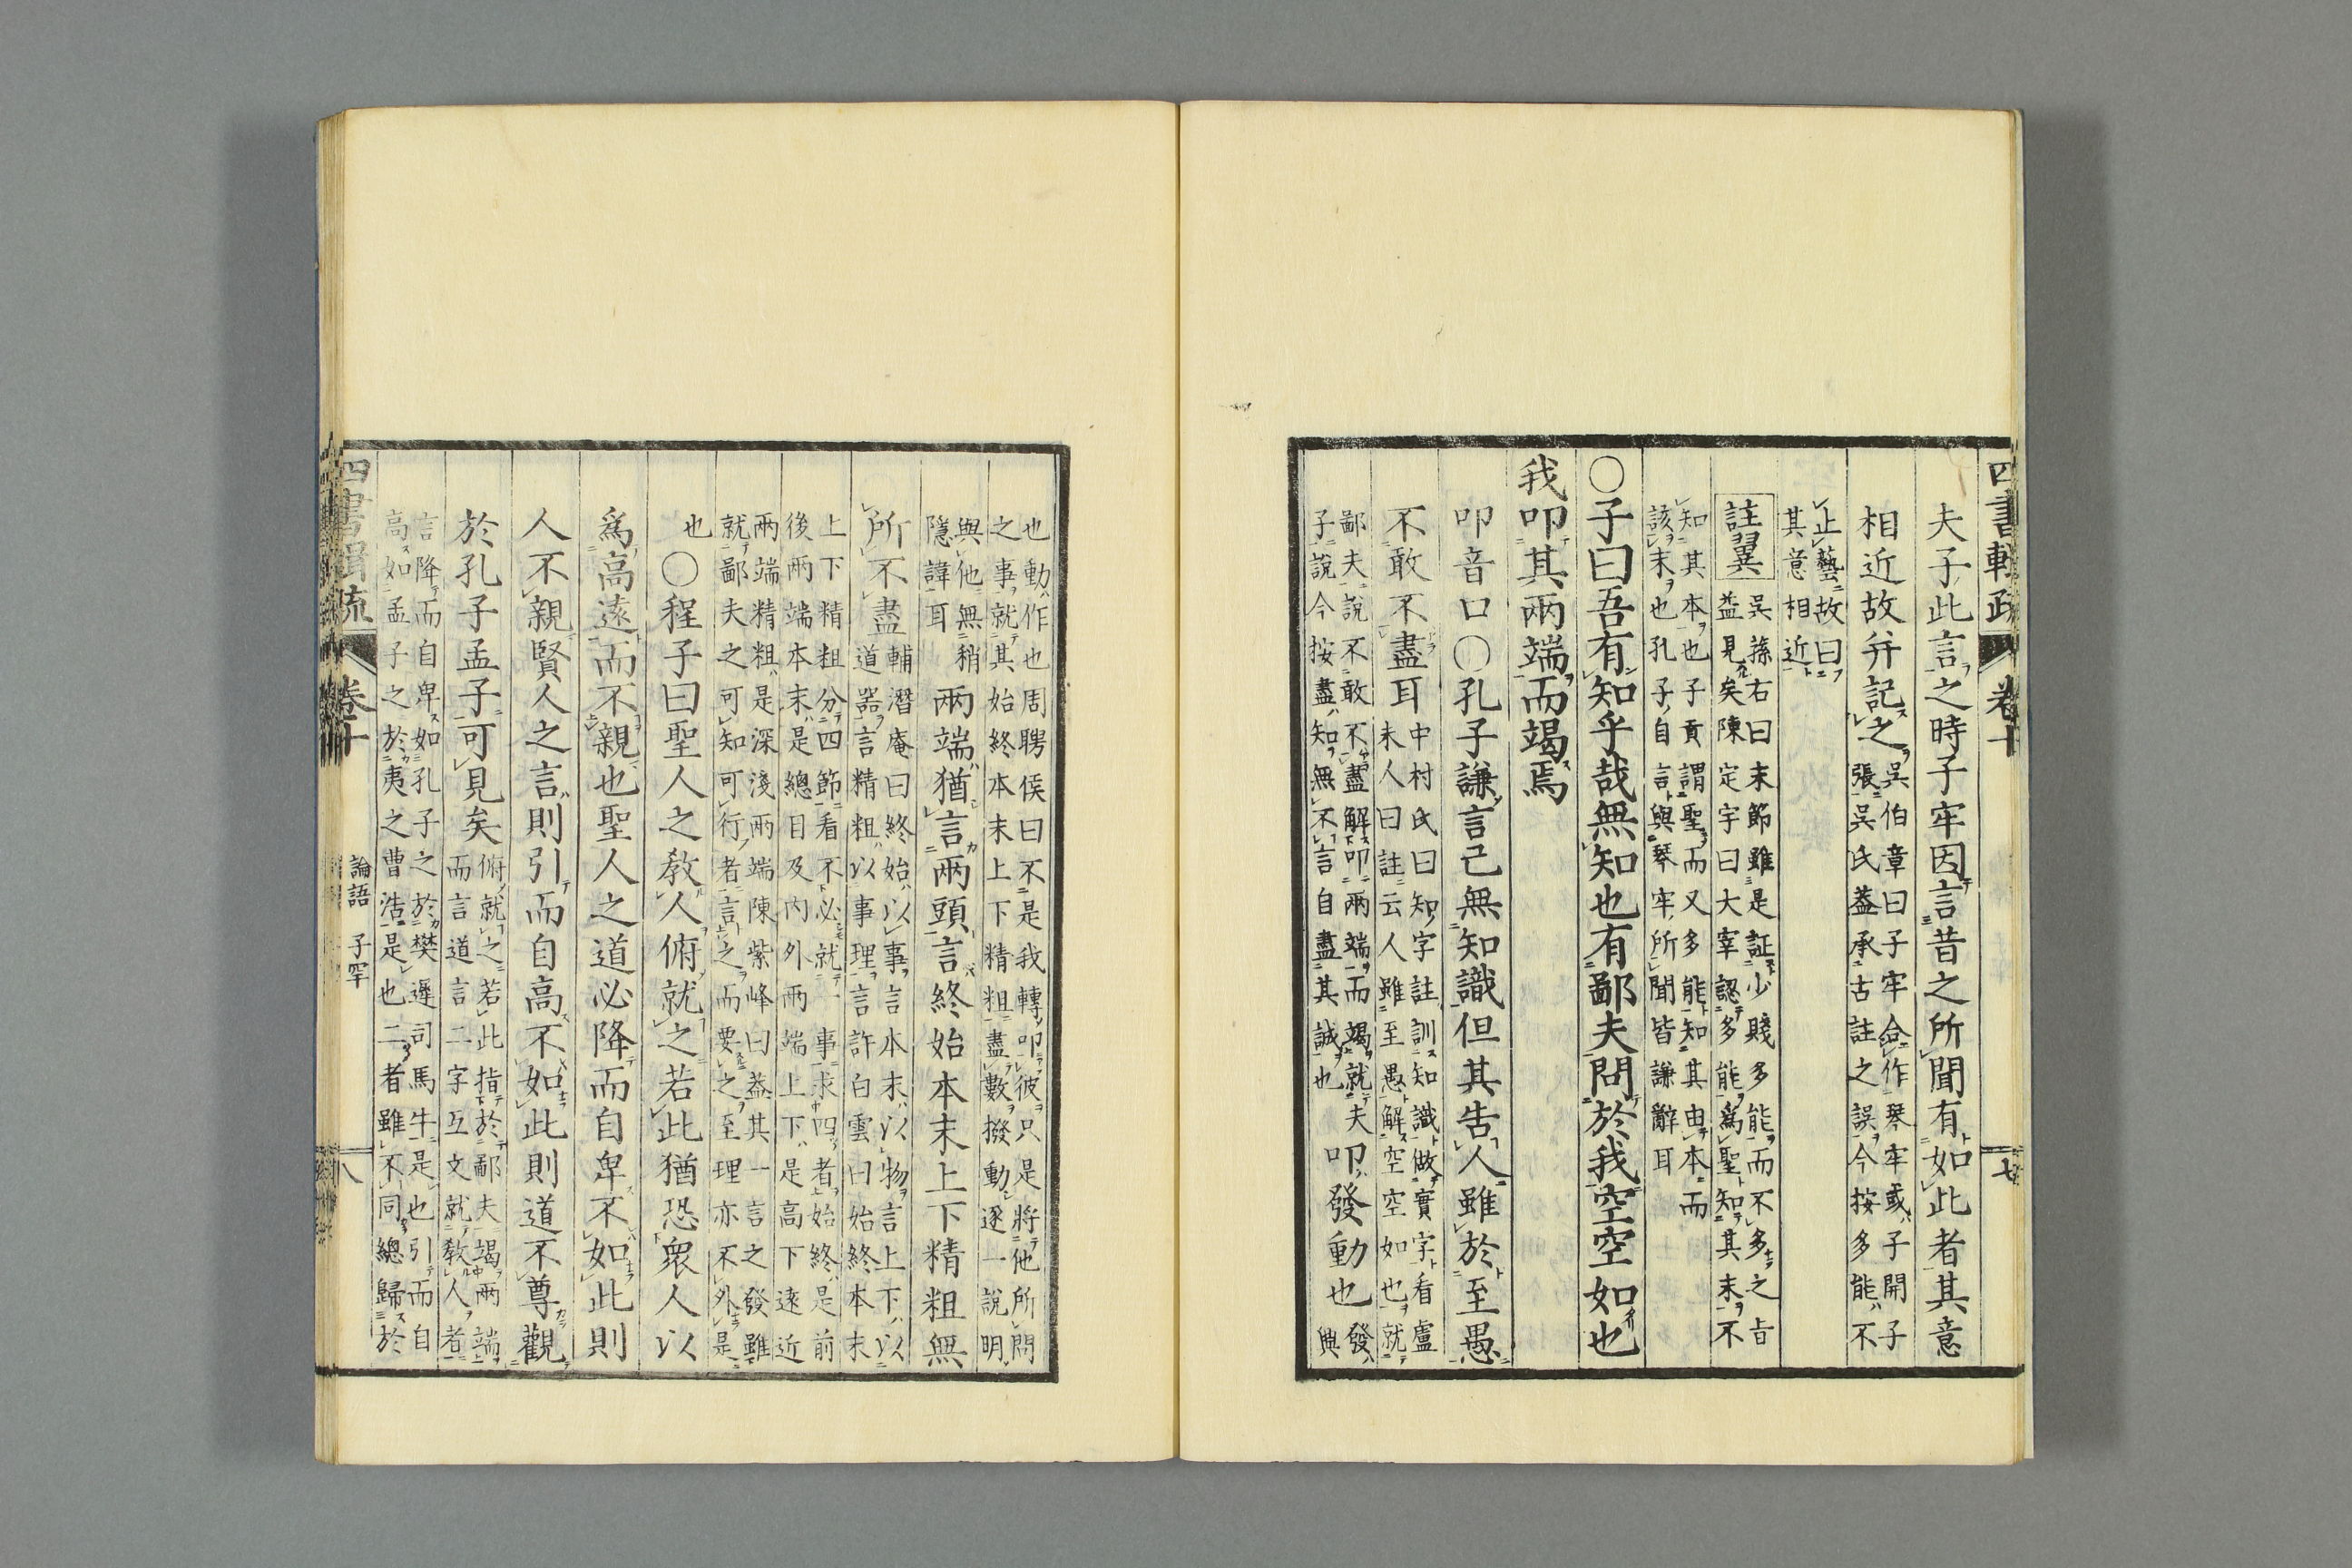 四書輯疏 卷十 七
夫子此言之時子牢因言昔之所聞有如此者其意
相近故并記之
吳伯章曰子牢合作琴牢或子開子
張吳氏葢承古註之誤今按多能不
止藝故曰
其意相近
註翼
吳蓀右曰末節雖是証少賤多能而不多之旨
益見矣陳定宇曰大宰認多能爲聖知其末不
知其本也子貢謂聖而又多能知其由本而
該末也孔子自言與琴牢所聞皆謙辭耳
○子曰吾有知乎哉無知也有鄙夫問於我空空如也
我叩其兩端而竭焉
叩音口○孔子謙言己無知識但其告人雖於至愚
不敢不盡耳
中村氏曰知字註訓知識做實字看盧
未人曰註云人雖至愚解空空如也就
鄙夫說不敢不盡解叩兩端而竭就夫
子說今按盡知無不言自盡其誠也
叩發動也
發
與
也動作也周聘侯曰不是我轉叩彼只是將他所問
之事就其始終本末上下精粗盡數撥動逐一說明
與他無稍
隱諱耳
兩端猶言兩頭言終始本末上下精粗無
所不盡
輔潛庵曰終始以事言本末以物言上下以
道器言精粗以事理言許白雲曰始終本末
上下精粗分四節看不必就一事求四者始終是前
後兩端本末是總目及內外兩端上下是高下遠近
兩端精粗是深淺兩端陳紫峰曰葢其一言之發雖
就鄙夫之可知可行者言之而要之至理亦不外是
也
○程子曰聖人之敎人俯就之若此猶恐衆人以
爲高遠而不親也聖人之道必降而自卑不如此則
人不親賢人之言則引而自高不如此則道不尊觀
於孔子孟子可見矣
俯就之若此指於鄙夫竭兩端
而言道言二字互文就敎人者
言降而自卑如孔子之於樊遲司馬牛是也引而自
高如孟子之於夷之曹浩是也二者雖不同總歸於
四書輯疏 卷十 論語 子罕 八